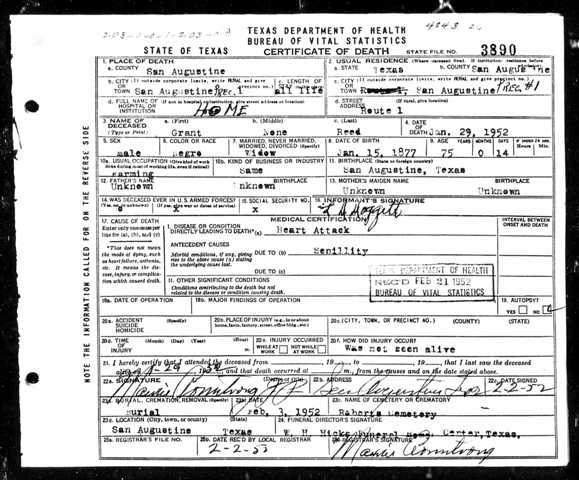 TEXAS DEPARTMENT OF HEALTH
BUREAU OF VITAL STATISTICS
STATE OF TEXAS CERTIFICATE OF DEATH STATE FILE NO. 3890
1. PLACE OF DEATH 2. USUAL RESIDENCE (Where deceased lived. If institution: residence before admission)
a. COUNTY San Augustine a. STATE Texas b. COUNTY San Augustine
b. CITY (If outside corporate limits, write RURAL and give precinct no.) San Augustine Prec.1 c. LENGTH OF all life c. CITY (If outside corporate limits, write RURAL and give precinct no.) San Augustine Prec #1
d. FULL NAME OF HOSPITAL OR INSTITUTION (If not in hospital or institution, give street address or location) HOME d. STREET ADDRESS (If rural, give location) Route 1
3. NAME OF DECEASED (Type or Print) a. (First) Grant b. (Middle) None c. (Last) Reed 4. DATE OF DEATH Jan. 29, 1952
5. SEX male 6. COLOR OR RACE Negro 7. MARRIED, NEVER MARRIED, WIDOWED, DIVORCED (Specify) Widow 8. DATE OF BIRTH Jan. 15, 1877 9. AGE YEARS 75 MONTHS 0 DAYS 14
10a. USUAL OCCUPATION farming 10b. KIND OF BUSINESS OR INDUSTRY Same 11. BIRTHPLACE (State or foreign country) San Augustine, Texas
12. FATHER'S NAME Unknown BIRTHPLACE Unknown 13. MOTHER'S MAIDEN NAME Unknown BIRTHPLACE Unknown
14. WAS DECEASED EVER IN U.S. ARMED FORCES? (If yes, give war or dates of service) x 15. SOCIAL SECURITY NO. x 16. INFORMANT'S SIGNATURE
17. CAUSE OF DEATH MEDICAL CERTIFICATION INTERVAL BETWEEN ONSET AND DEATH
Enter only one cause per line for (a), (b), and (c)
I. DISEASE OR CONDITION DIRECTLY LEADING TO DEATH (a) Heart Attack
*This does not mean the mode of dying, such as heart failure, asthenia, etc. It means the disease, injury, or complication which caused death.
ANTECEDENT CAUSES
Morbid conditions, if any, giving rise to the above cause (a) stating the underlying cause last.
DUE TO (b) Senillity
DUE TO (c)
II. OTHER SIGNIFICANT CONDITIONS
Conditions contributing to the death but not related to the disease or condition causing death.
TEXAS DEPARTMENT OF HEALTH
REC'D FEB 21 1952
BUREAU OF VITAL STATISTICS
18a. DATE OF OPERATION 18b. MAJOR FINDINGS OF OPERATION 19. AUTOPSY YES NO
20a. ACCIDENT SUICIDE HOMICIDE (Specify) 20b. PLACE OF INJURY (e.g., in or about home, farm, factory, street, office bldg., etc.) 20c. (CITY, TOWN, OR PRECINCT NO.) (COUNTY) (STATE)
20d. TIME OF INJURY (Month) (Day) (Year) (Hour) 20e. INJURY OCCURRED WHILE AT WORK NOT WHILE AT WORK 20f. HOW DID INJURY OCCUR?
Was not seen alive
21. I hereby certify that I attended the deceased from
and that death occurred at m., from the causes and on the date stated above.
22a. SIGNATURE Mautis Armstrong J.P. 22b. ADDRESS San Augustine Tex 22c. DATE SIGNED 2-2-52
23a. BURIAL, CREMATION, REMOVAL (Specify) Burial 23b. DATE Feb. 3, 1952 23c. NAME OF CEMETERY OR CREMATORY Roberts Cemetery
23d. LOCATION (City, town, or county) (State) San Augustine Texas 24. FUNERAL DIRECTOR'S SIGNATURE W. H. Hicks Funeral Home Center, Texas,
25a. REGISTRAR'S FILE NO. 25b. DATE REC'D BY LOCAL REGISTRAR 2-2-52 25c. REGISTRAR'S SIGNATURE Mautis Armstrong
NOTE THE INFORMATION CALLED FOR ON THE REVERSE SIDE